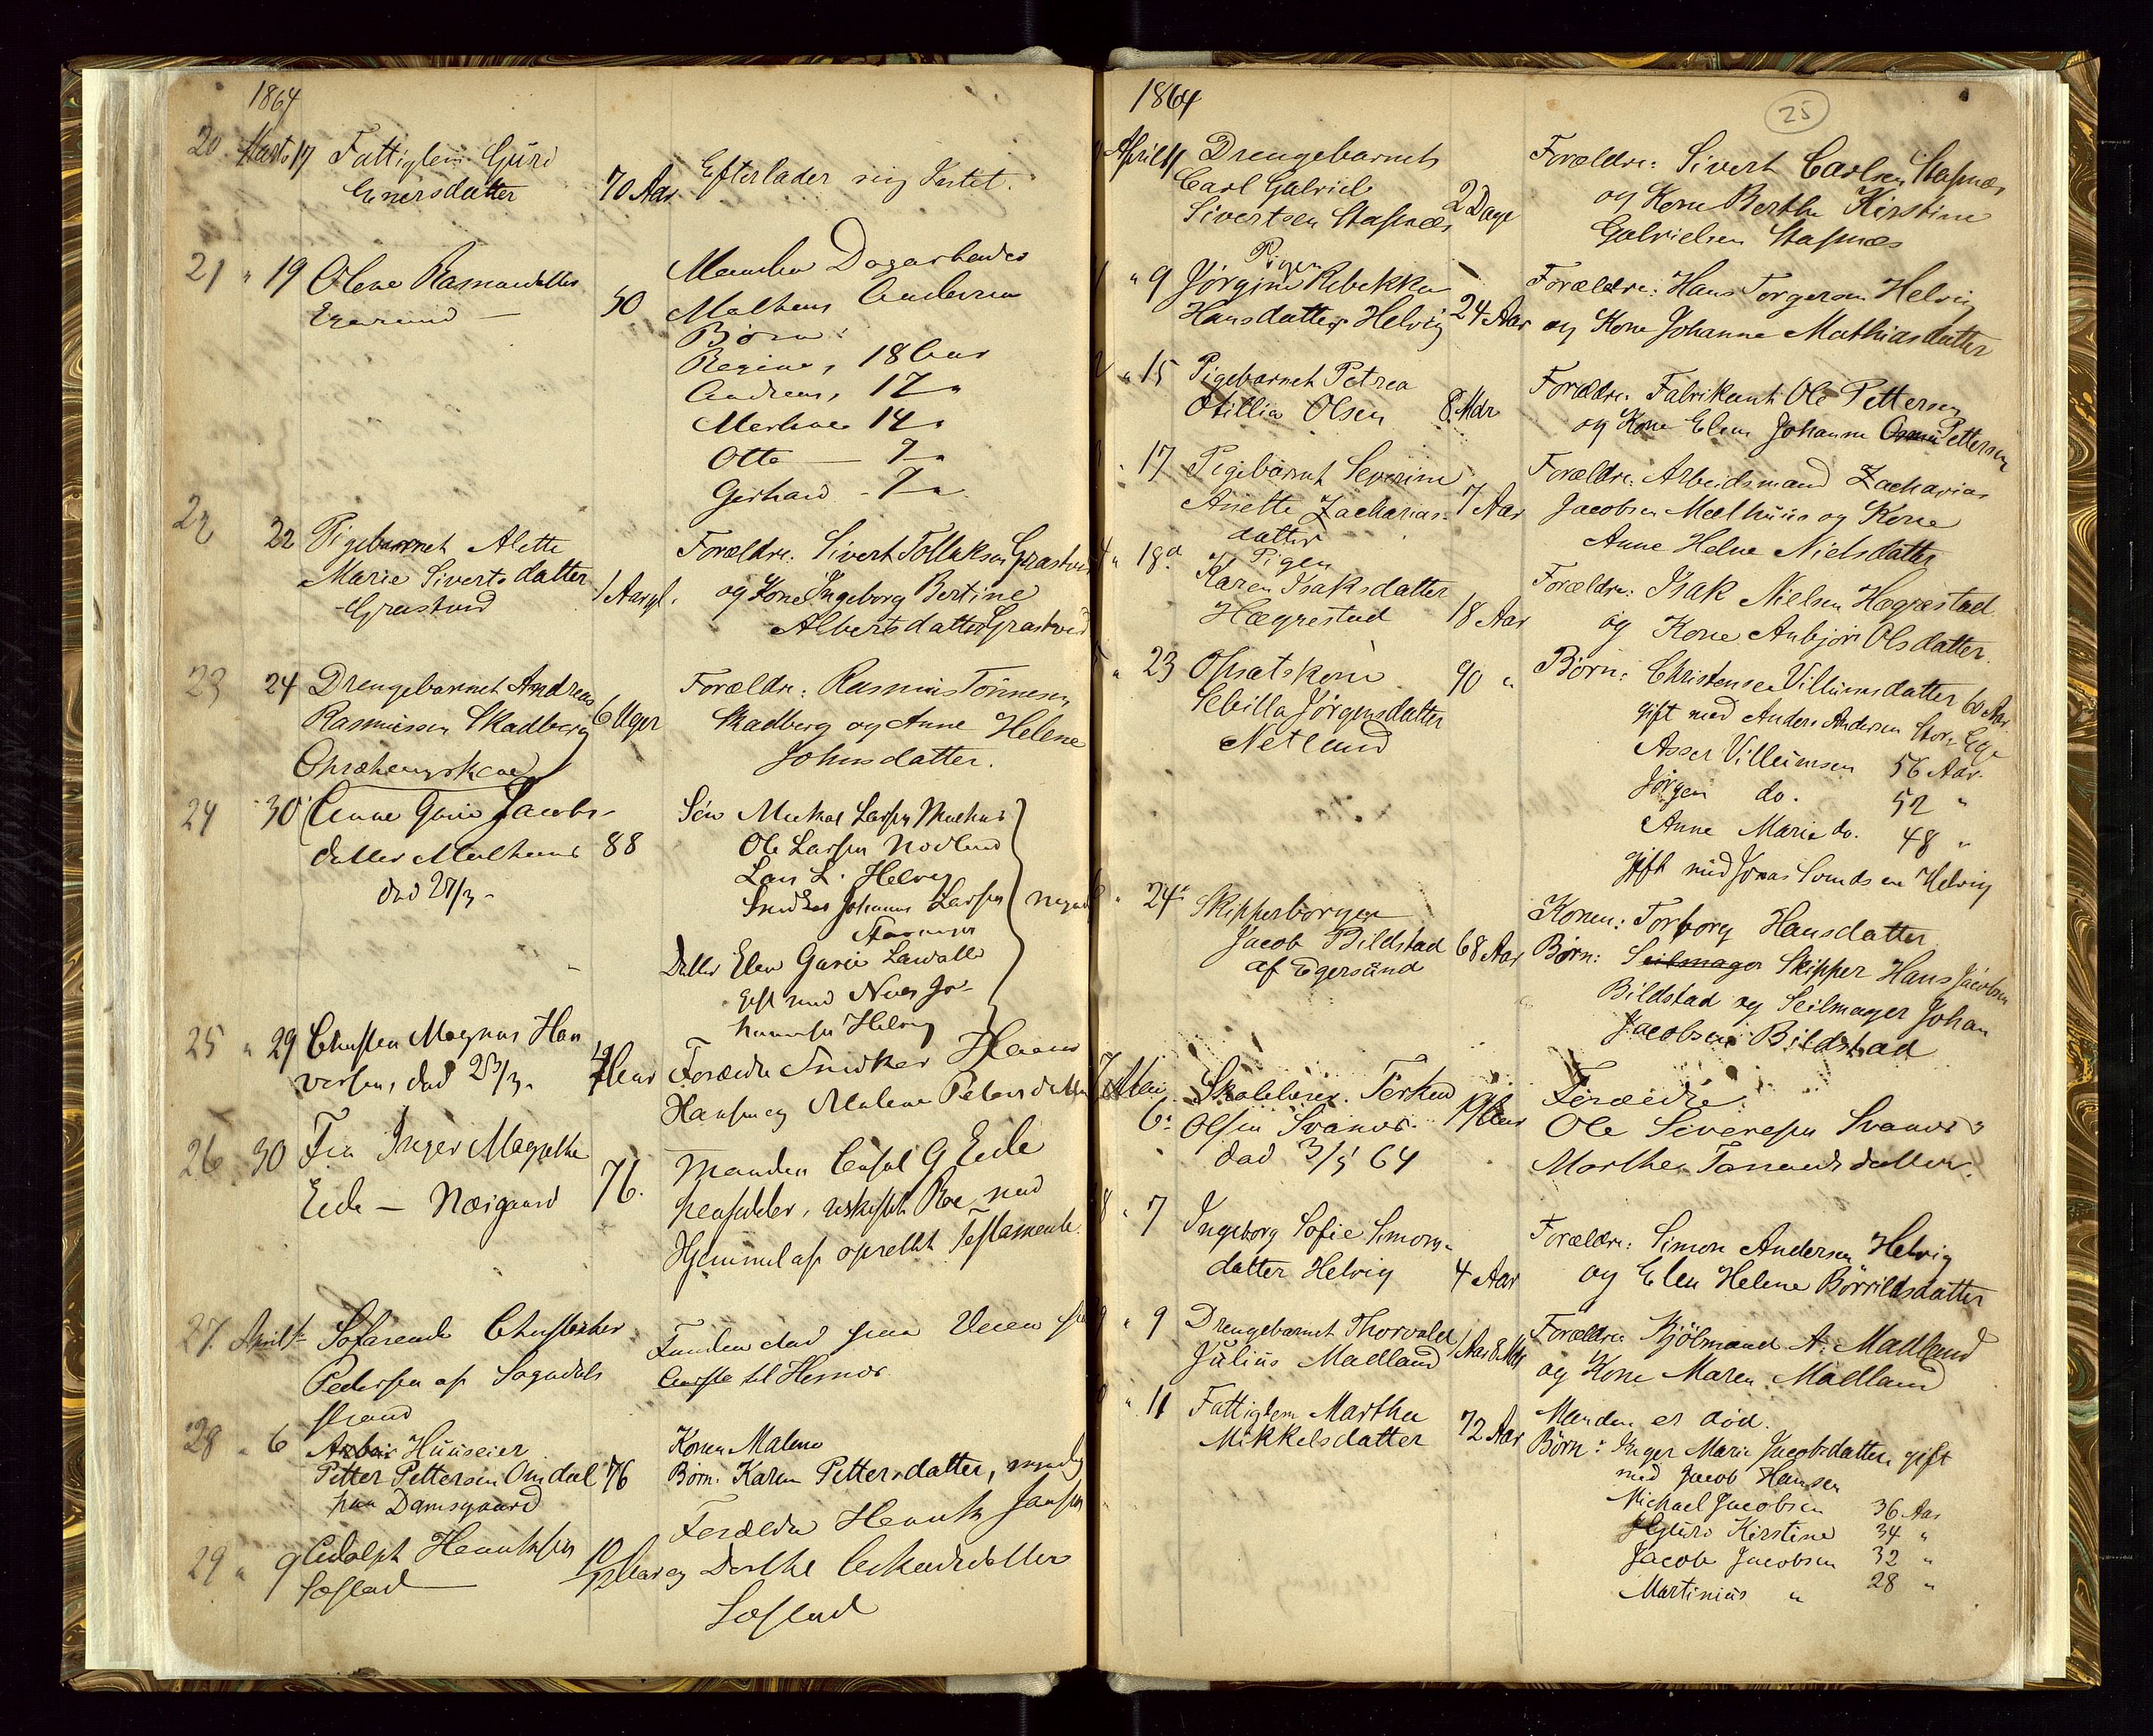 1864
20 Marts 17 Fattiglem Guri
Enersdatter 70 Aar Efterlader sig Intet.
21 " 19 Olene Rasmusdatter
Egersund — 50
Manden Dagarbeider
Mathias Andersen
Børn:
Regine, 18 Aar
Andreas, 17 "
Marthe 14 "
Otto — 7 "
Gerhard - 7 "
22 22 Pigebarnet Alette
Marie Siverts datter
Grastveid 1 Aar gl.
Forældre: Sivert Tollaksen Grastveid
og Kone Ingeborg Bertine
Albertsdatter Grastveid
23 24 Drengebarnet Andreas
Rasmussen Skadberg 6 Uger
Forældre: Rasmus Tønnesen
Skadberg og Anne Helene
Johnsdatter.
24 30 Anne Jacobs-
datter 88
død 27/3 -
Søn Larsen
Ole Larsen
Lars L. Helvig
Snedker Johannes Larsen
Datter Elen
gift med
Helvig
25 " 29 Magnus Han
død 23/3. Aar
Forældre Snedker
Hansen og Malene Petersdatter
26 30 Fru Inger
Eide — 76.
Manden Consul G Eide
med
Hjemmel af oprettet Testamente.
27. April 1 Søfarende
Pedersen af Sogndals
strand
Funden død paa Veien fra
til
28 " 6 Huuseier
Petter Pettersen Omdal 76
paa Damsgaard
Konen Malene
Børn: Karen Pettersdatter, myndig
29 " 9 Adolph Henriksen
10/12 Aar
Forældre Henrik Jansen
og Dorthe
1864
25
April 4 Drengebarnet
Carl Gabriel
Sivertsen Stapnæs 2 Dage
Forældre: Sivert Carlsen Stapnæs
og Kone Berthe Kirstine
Gabrielsen Stapnæs
" 9 Pigen
Jørgine Rebekka
Hansdatter Helvig 24 Aar
Forældre: Hans Torgersen Helvig
og Kone Johanne Mathiasdatter
" 15 Pigebarnet Petrea
Otillia Olsen 8 Mdr
Forældre: Fabrikant Ole Pettersen
og Kone Elen Johanne Pettersen
" 17 Pigebarnet Severine
Anette Zacharias-
datter 7 Aar
Forældre: Arbeidsmand Zacharias
Jacobsen Mælhuus og Kone
Anne Helene Nielsdatter
" 18 Pigen
Karen Isaksdatter
Hægrestad 18 Aar
Forældre: Isak Nielsen Hægrestad
og Kone Anbjør Olsdatter.
" 23
Sebilla Jørgensdatter
Netland 90 "
Børn: Christense Villumsdatter 60 Aar
gift med Anders Andersen Store Ege
Asser Villumsen 56 Aar.
Jørgen do. 52 "
Anne Marie do. 48 "
gift med Jonas Svendsen Helvig
" 24 Skipperborger
Jacob Bildstad 68 Aar
af Egersund
Konen: Torborg Hansdatter
Børn: Seilmager Skipper Hans Jacobsen
Bildstad og Seilmager Johan
Jacobsen Bildstad
7 Mai
6 Skolelærer Terkel
Olsen Svanes
død 3/5 64
Forældre:
Ole Sivertsen Svanes
Marthe
8 " 7 Ingeborg Sofie Simons-
datter Helvig 4 Aar
Forældre: Simon Andersen Helvig
og Elen Helene Børrildsdatter
9 " 9 Drengebarnet Thorvald
Julius Madland 1 Aar 8 Mdr
Forældre: Kjøbmand A. Madland
og Kone Maren Madland
" 11 Fattiglem Martha
Mikkelsdatter 72 Aar
Manden er død.
Børn: Inger Marie Jacobsdatter, gift
med Jacob Hansen
Michael Jacobsen 36 Aar
Guri Kirstine 34 "
Jacob Jacobsen 32 "
Martinius " 28 "